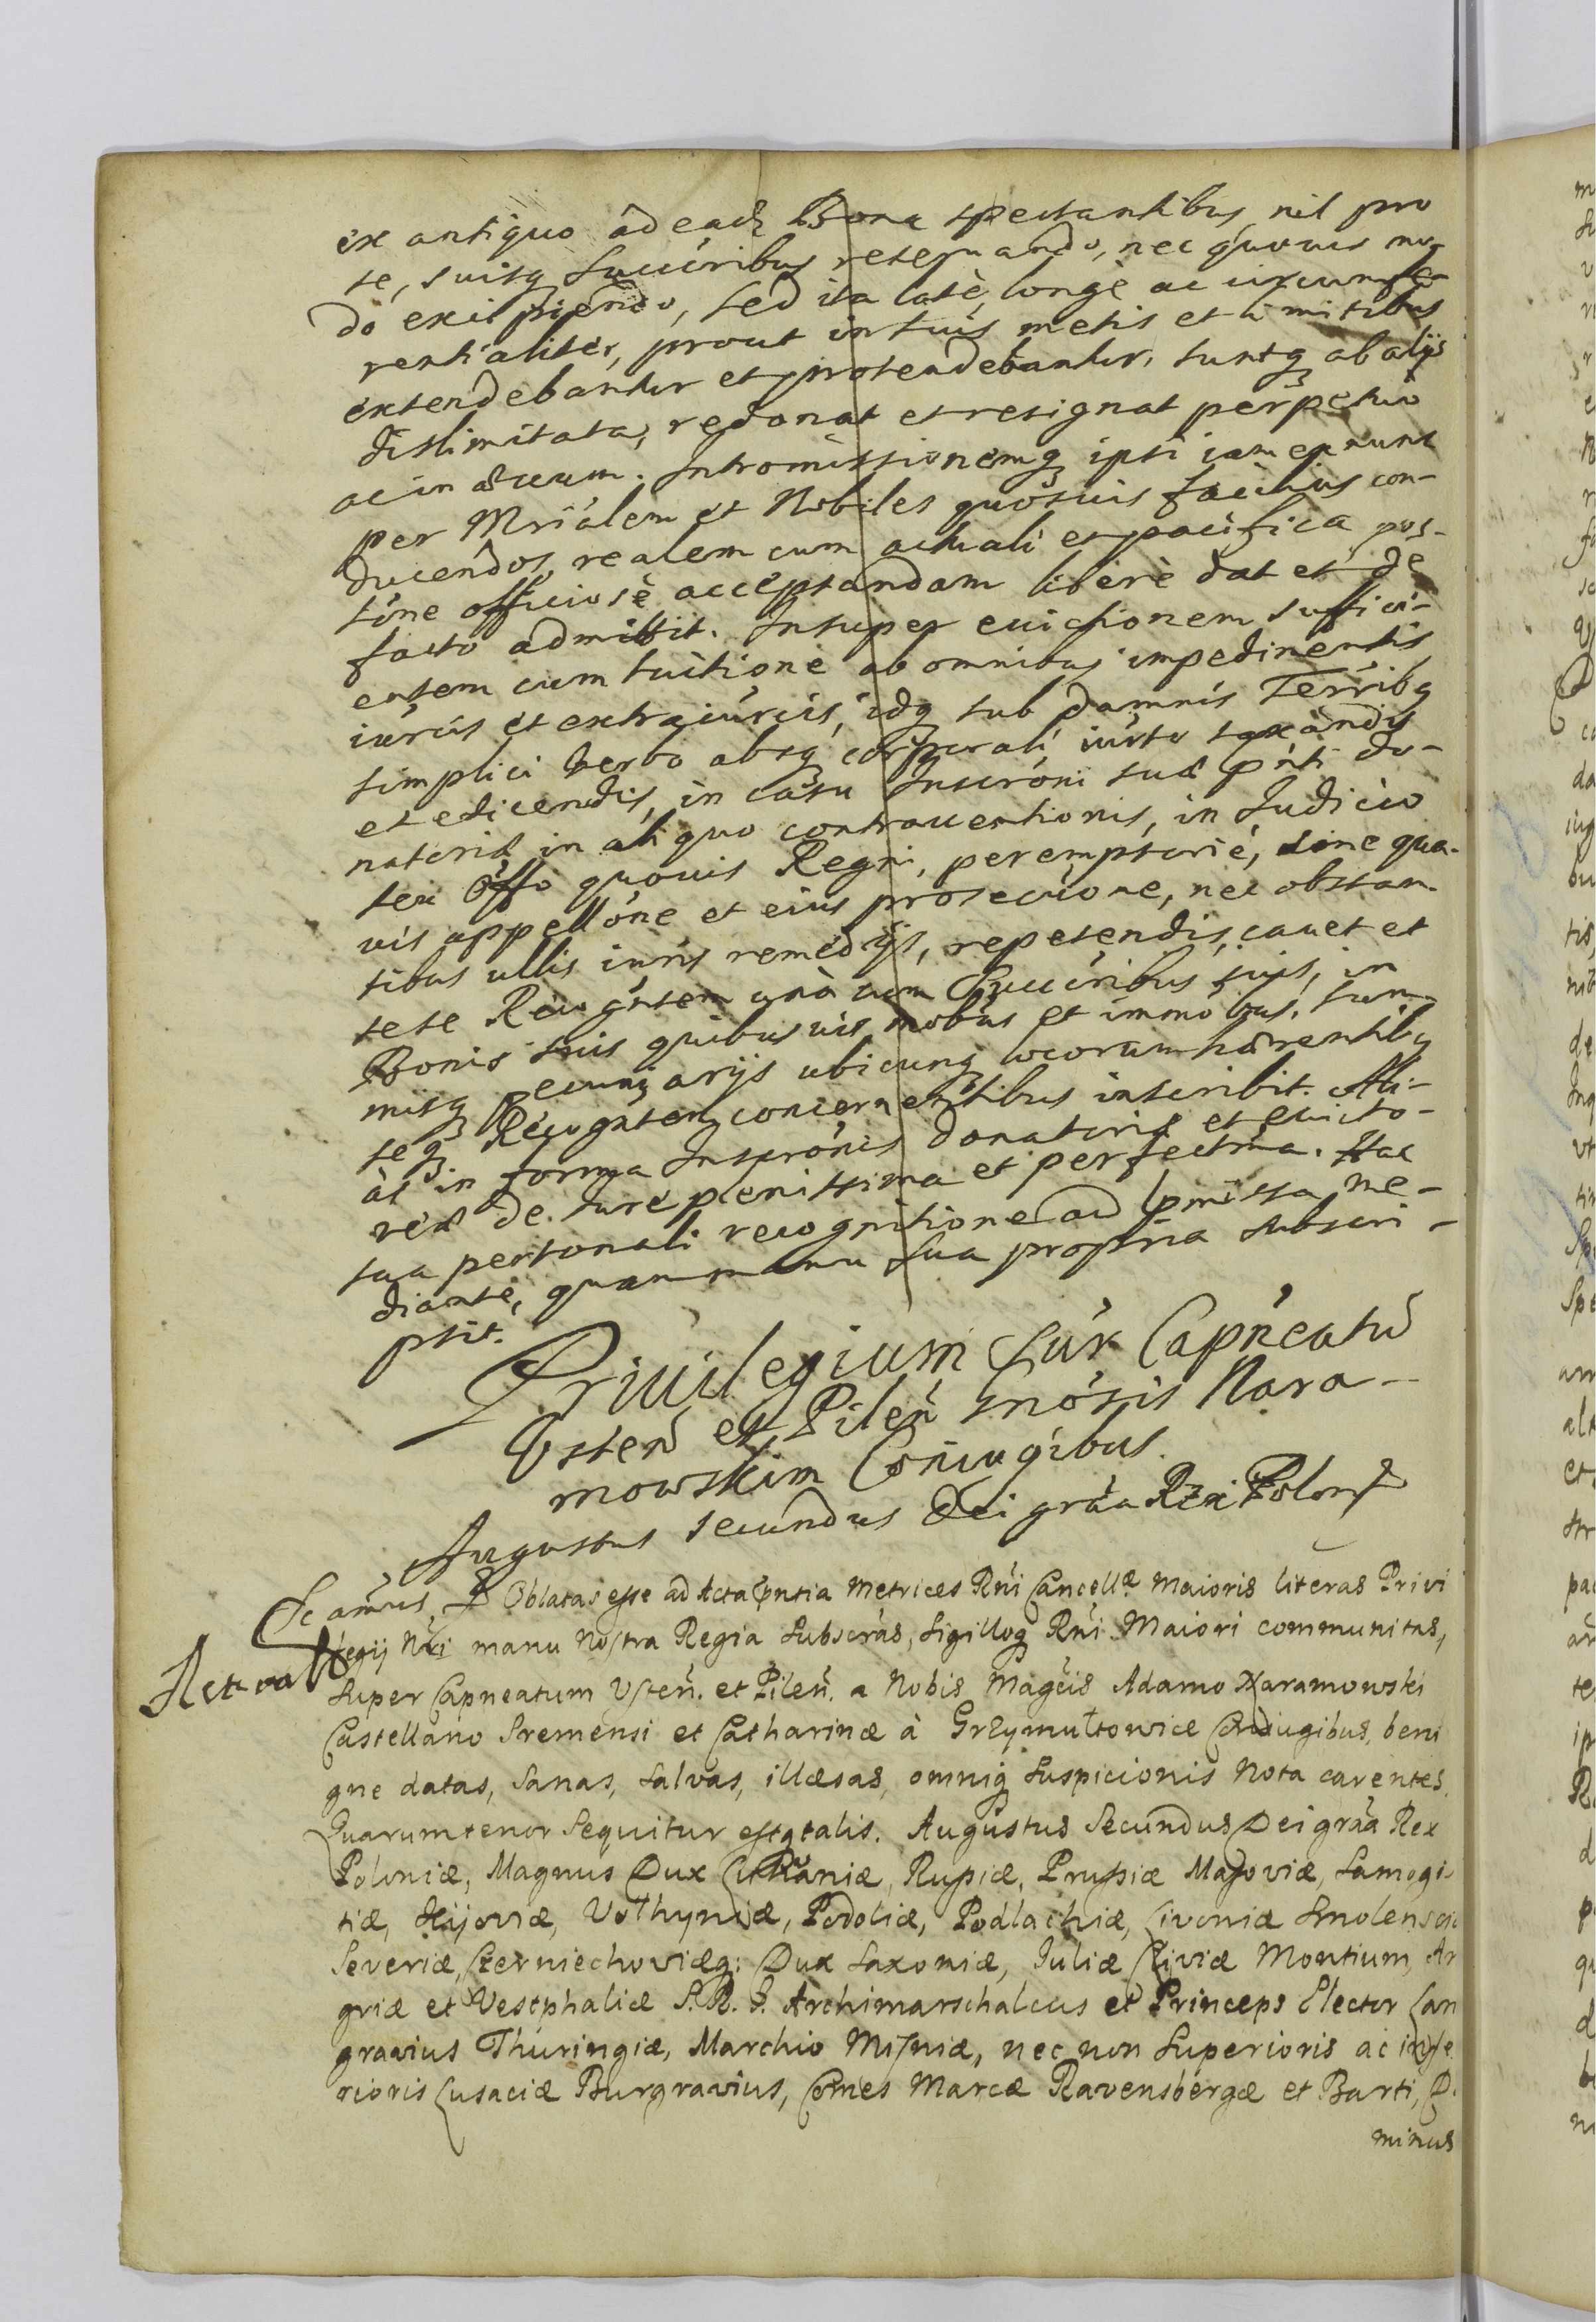 ex antiquo ad eadz Bona spectantibus nil pro
se, suisq Succéribus reseruando, nec quouis mo-
do excipiendo, sed ita latè, longè ac circumfe-
rentialiter, prout in suis metis et limitibus
extendebantur et protendebantur, suntq ab alijs
dislimitata, redonat et resignat perpetuò
ac in æuum. Intromissionemq ipsi iam ex nunc
per Mriálem et Nobiles quósuis faciliùs con-
ducendos, realem cum actuali et pacifica pos-
sióne officiosè acceptandam liberè dat et de
facto admittit. Insuper euictionem suffici-
entem cum tuitione ab omnibus impedimentis
iúrcis et extraiúrcis, idq sub damnis Terribq
simplici verbo absq corporali iúrto taxandis
et edicendis, in casu Inscróni suæ pńti do-
natoriæ in aliquo contrauentionis, in Judicio
seu Offo quouis Regni, peremptoriè, sine qua-
vis appellóne et eius prosecuóne, nec obstan-
tibus ullis iuris remedijs, repetendis, cauet et
sese Recogńtem unà cum Succéribus suis, in
Bonis suis quibusuis mobús et immóbus, sum-
misq pecuniarijs ubicunq locorum hærentibq
seq Recogńtem concernentibus inscribit. Ali-
às in forma Inscrónis donatoriæ et euicto-
reæ de Iure plenissima et perfectma. Hac
sua personali recognitione ad præmissa me-
diante, quam manu sua propria subscri-
psit.
Priuilegium Súr Capńeatú
Usteń et Pileń Gnósis Nara-
mowskim Coniugibus.
Augustus secundus Dei gráa Rex Poloniæ
Sc amus & Oblatas esse ad Acta pntia Metrices Rni Cancellæ Maioris literas Privi
legij Nri manu Nostra Regia Subscras, Sigilloq Rni Maiori communitas,
Super Capneatum Usteń. et Pileń. a Nobis Magcis Adamo Naramowski
Castellano Sremensi et Catharinæ à Grzymułtowice Coniugibus, beni
gne datas, Sanas, Salvas, illæsas, omniq Suspicionis Nota carentes.
Quarum tenor Sequitur estq talis. Augustus Secundus Dei gráa Rex
Poloniæ, Magnus Dux Lithuaniæ, Russiæ, Prussiæ Masoviæ, Samogi-
tiæ, Kijoviæ, Volhyniæ, Podoliæ, Podlachiæ, Livoniæ Smolensciæ
Severiæ, Czerniechoviæq: Dux Saxoniæ, Juliæ Cliviæ Montium, An
griæ et Vestphaliæ S. R. I. Archimarschalcus et Princeps Elector Lan
gravius Thuringiæ, Marchio Misniæ, nec non Superioris ac infe
rioris Lusaciæ Burgravius, Comes Marcæ Ravensbergæ et Barti, D.
minus